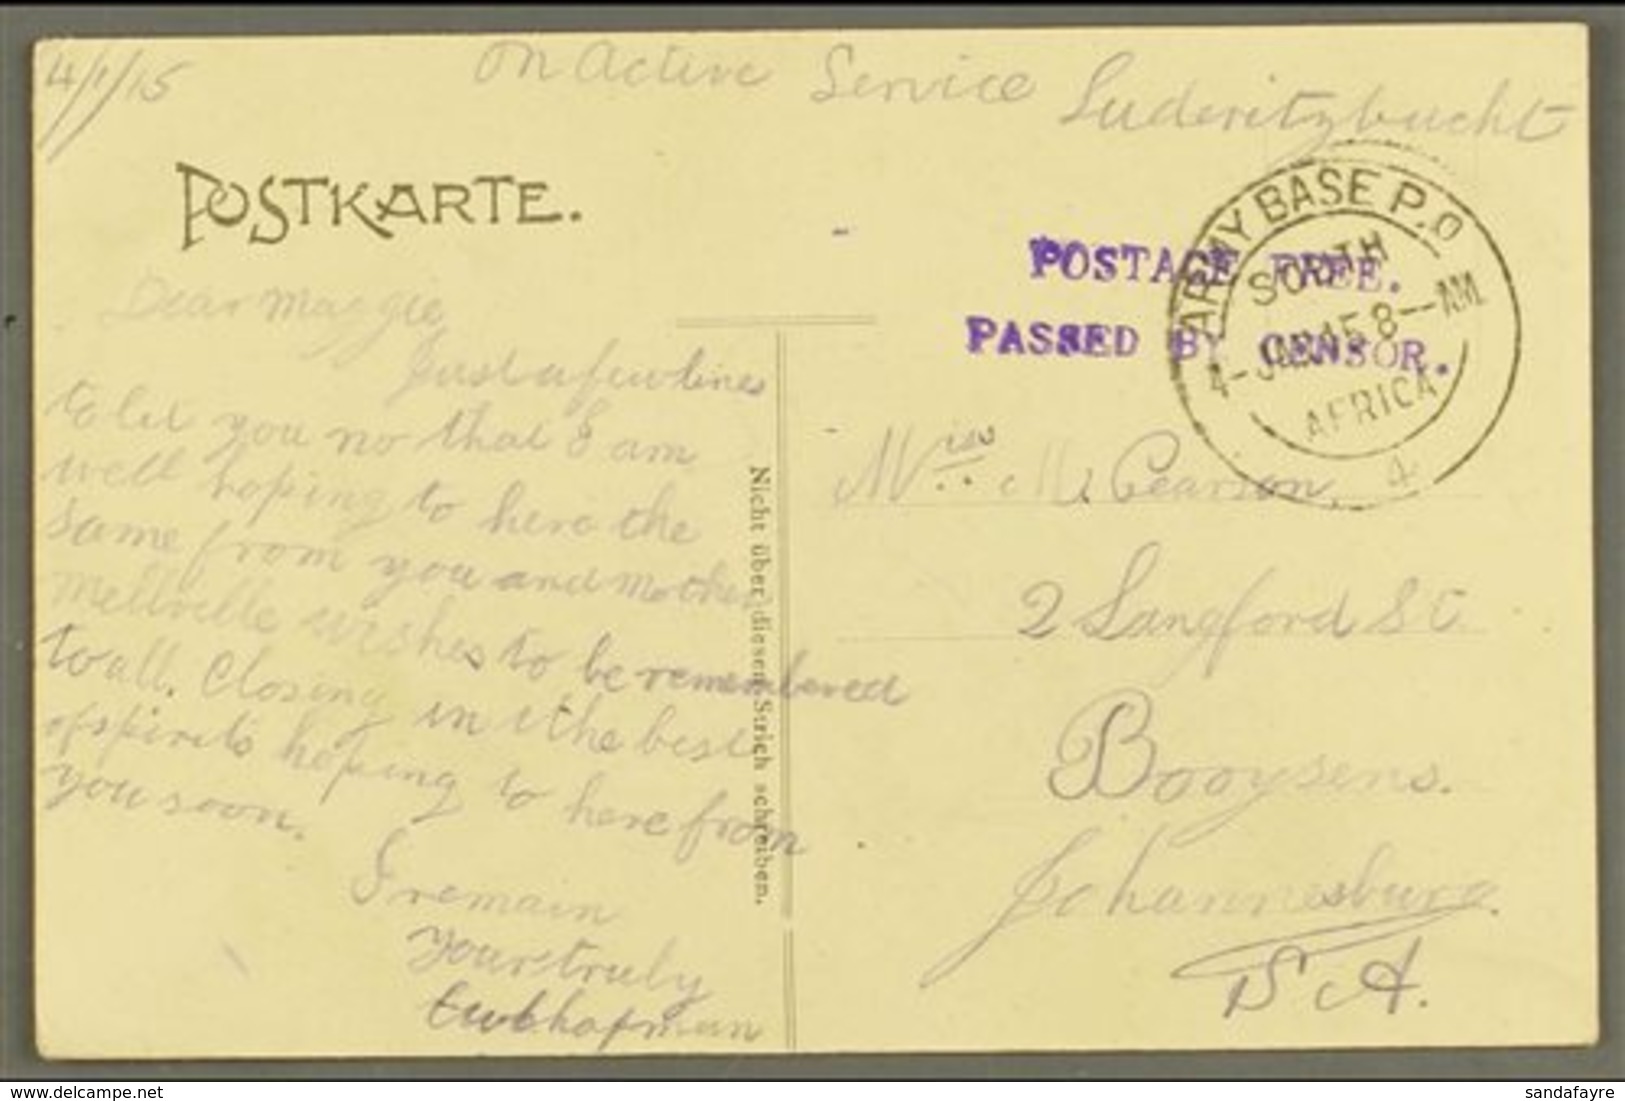 4/1/15
On Active Service Luderitzbucht
POSTKARTE.
ARMY BASE P.O
SOUTH
4-JAN 15 8--AM
AFRICA
4
POSTAGE FREE.
PASSED BY CENSOR.
Dear Maggie
Just a few lines
to let you no that I am
well hoping to here the
same from you and Mother
Mellville wishes to be remembered
to all. Closing in the best
of spirits hoping to here from
you soon.
I remain
yours truly
Chapman
Nicht über diesen Strich schreiben.
Miss M. Pearson,
2 Langford St.
Booysens.
Johannesburg.
S.A.
sandafayre